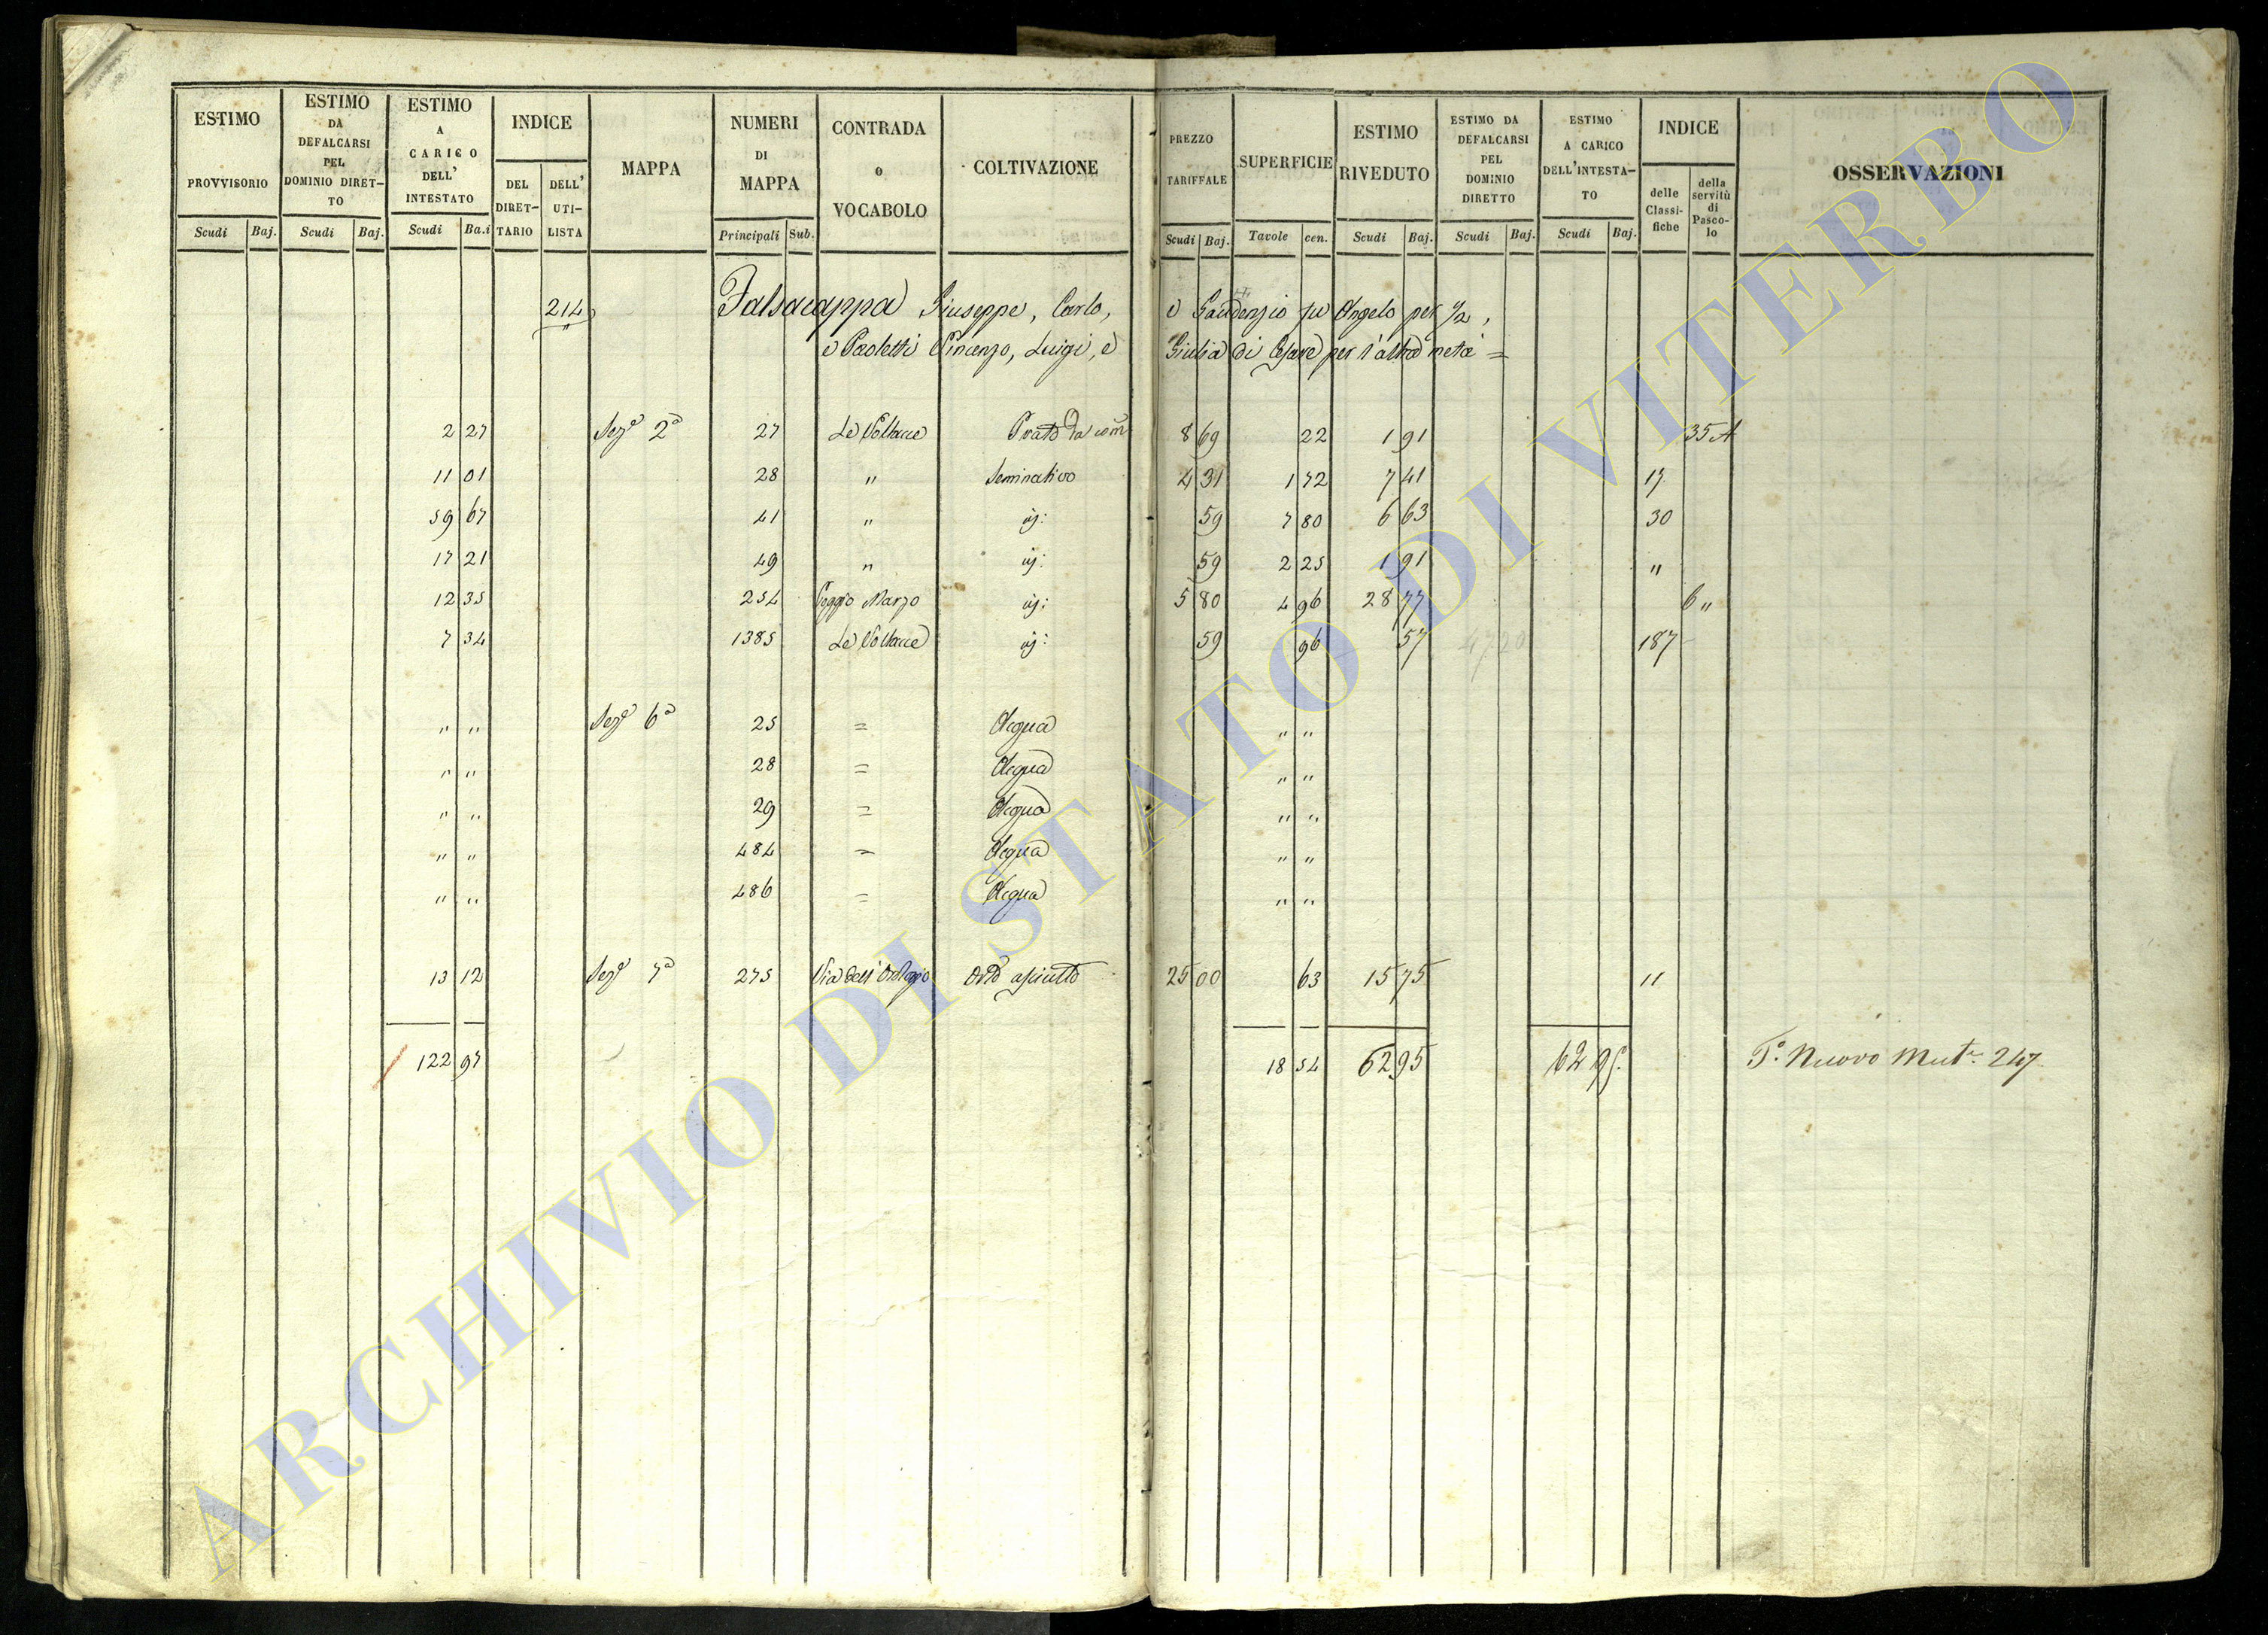 ESTIMO PROVVISORIO
ESTIMO DA DEFALCARSI PEL DOMINIO DIRET-TO
ESTIMO A CARICO DELL' INTESTATO
INDICE
DEL DIRET-TARIO
DELL' UTI-LISTA
MAPPA
NUMERI DI MAPPA
CONTRADA o VOCABOLO
COLTIVAZIONE
PREZZO TARIFFALE
SUPERFICIE
ESTIMO RIVEDUTO
ESTIMO DA DEFALCARSI PEL DOMINIO DIRETTO
ESTIMO A CARICO DELL'INTESTA-TO
INDICE
delle Classi-fiche
della servitù di Pasco-lo
OSSERVAZIONI
Scudi Baj. Scudi Baj. Scudi Ba.i Principali Sub. Scudi Baj. Tavole cen. Scudi Baj. Scudi Baj. Scudi Baj.
214 Falsacappa Giuseppe, Carlo, e Gaudenzio fu Angelo per 1/2,
e Paoletti Vincenzo, Luigi, e Giulia di Cesare per l'altra metà =
2 27 Seze 2a 27 Le Prato da com 8 69 22 1 91 35 A
11 01 28 " Seminativo 4 31 1 72 7 41 17
59 67 41 " iij: 59 7 80 6 63 30
17 21 49 " iij: 59 2 25 1 91 "
12 35 254 Poggio Marzo iij: 5 80 4 96 28 77 6 "
7 34 1385 Le iij: 59 96 57 4720 187
" " Seze 6a 25 = Acqua " "
" " 28 = Acqua " "
" " 29 = Acqua " "
" " 484 = Acqua " "
" " 486 = Acqua " "
13 12 Seze 7a 275 Via dell' Orologio Orto asciutto 25 00 63 15 75 11
122 97 18 54 62 95 62 95. To Nuovo Mut. 247
ARCHIVIO DI STATO DI VITERBO